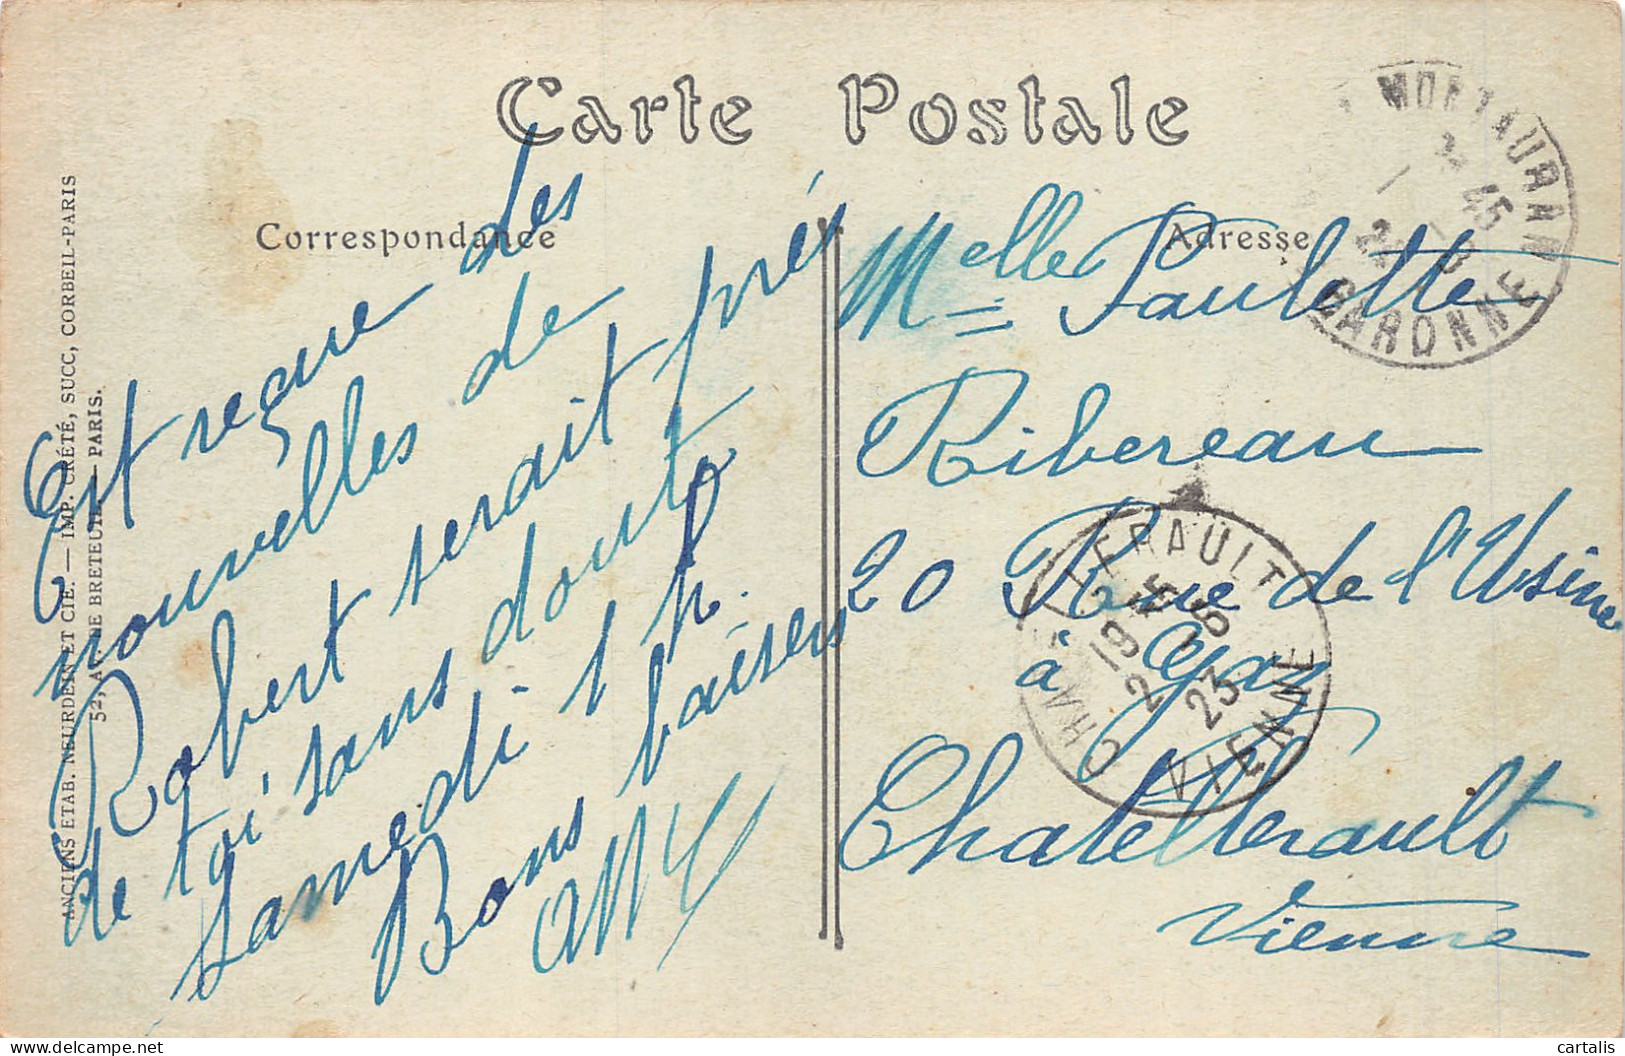 Carte Postale
Correspondance
Est reçue des
nouvelles de
Robert serait près
de toi sans doute
Samedi 1 h.
Bons baisers
Adresse
Melle Paulette
Ribereau
20 Rue de l'Usine
à Gaz
Chatellerault
Vienne
MONTAUBAN
GARONNE
CHATELLERAULT
19 15
2 - 6
23
VIENNE
ANCIENS ETAB. NEURDEIN ET CIE. — IMP. CRÉTÉ, SUCC, CORBEIL-PARIS
52, AVE DE BRETEUIL — PARIS.
cartalis